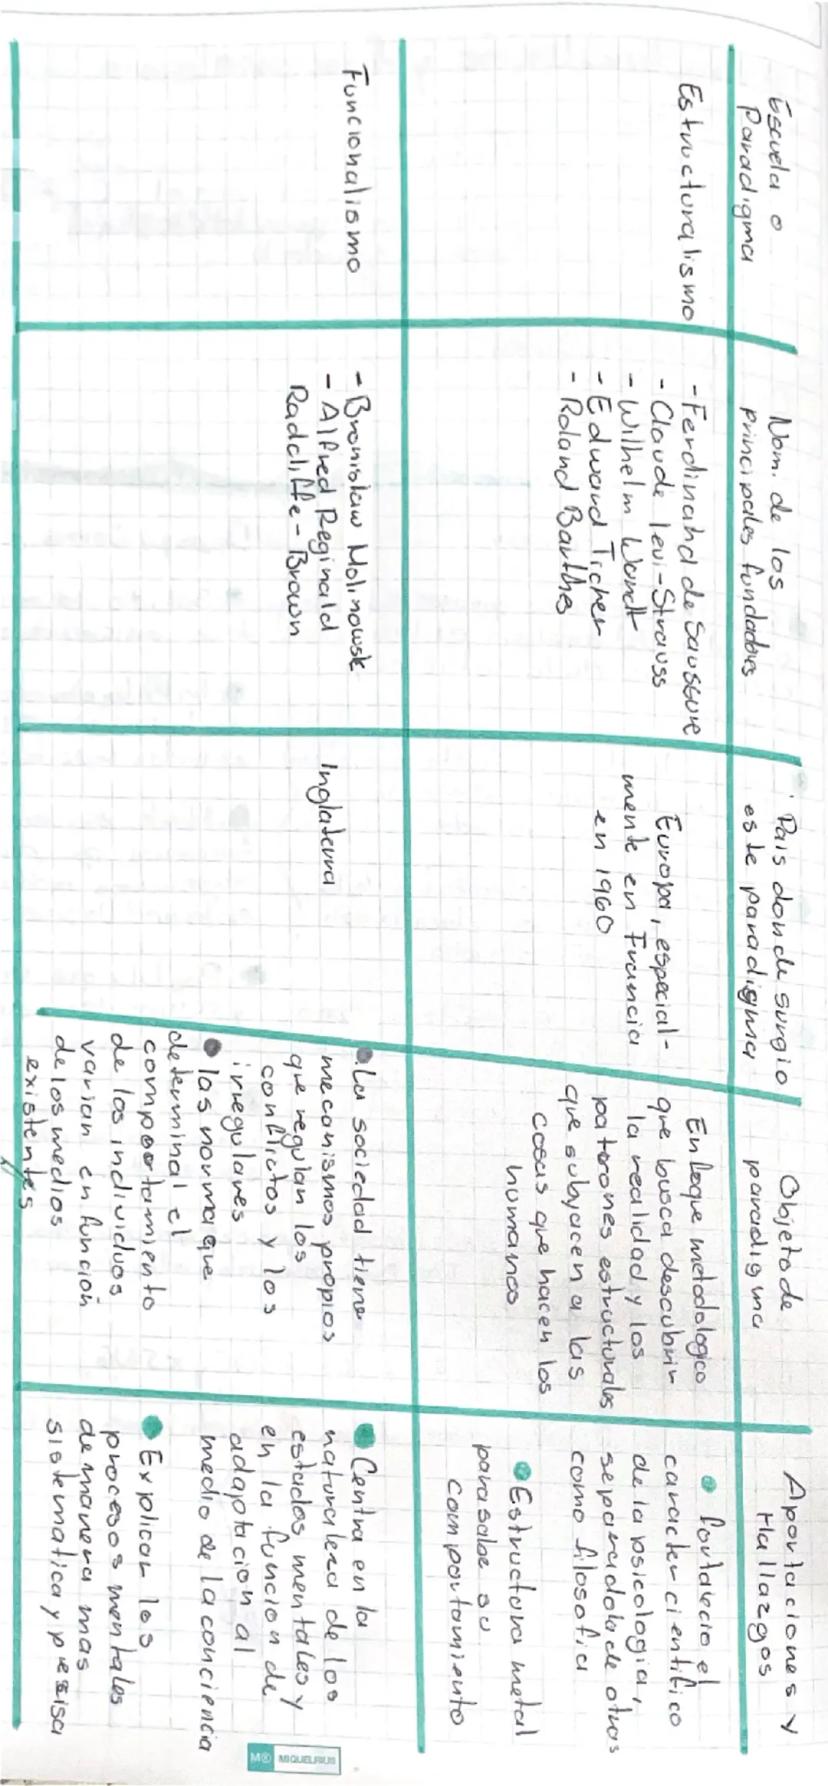 Escuela o
Paradigma
Nom. de los
principales fundadores
Pais donde surgio
este paradigma
Objeto de
paradigma
Aportaciones y
Hallazgos
Estructuralismo
- Ferdinahd de Saussure
- Claude levi-Strauss
- Wilhelm Wondt
- Edward Ticher
- Roland Barthes
Europa, especial-
mente en Francia
en 1960
Enfoque metodologico
que busca descubrir
la realidad y los
patorones estructurales
que subjacen a las
cosas que hacen los
humanos
• fortalecio el
caracter cientifico
de la psicologia,
separandola de otras
como filosofia
• Estructura metal
para sabe su
comportamiento
Funcionalismo
- Bronislaw Molinowsk
- Alfred Reginald
Radcliffe - Brown
Inglaterra
• La sociedad tiene
mecanismos propios
que regulan los
conflictos y los
irregulares
• las norma que
determinal el
compoortamiento
de los individuos
varian en función
de los medios
existentes
• Centra en la
naturaleza de los
estados mentales y
en la funcion de
adaptacion al
medio de la conciencia
• Explicar los
procesos mentales
de manera mas
sistematica y presisa
M® MIQUELRIUS